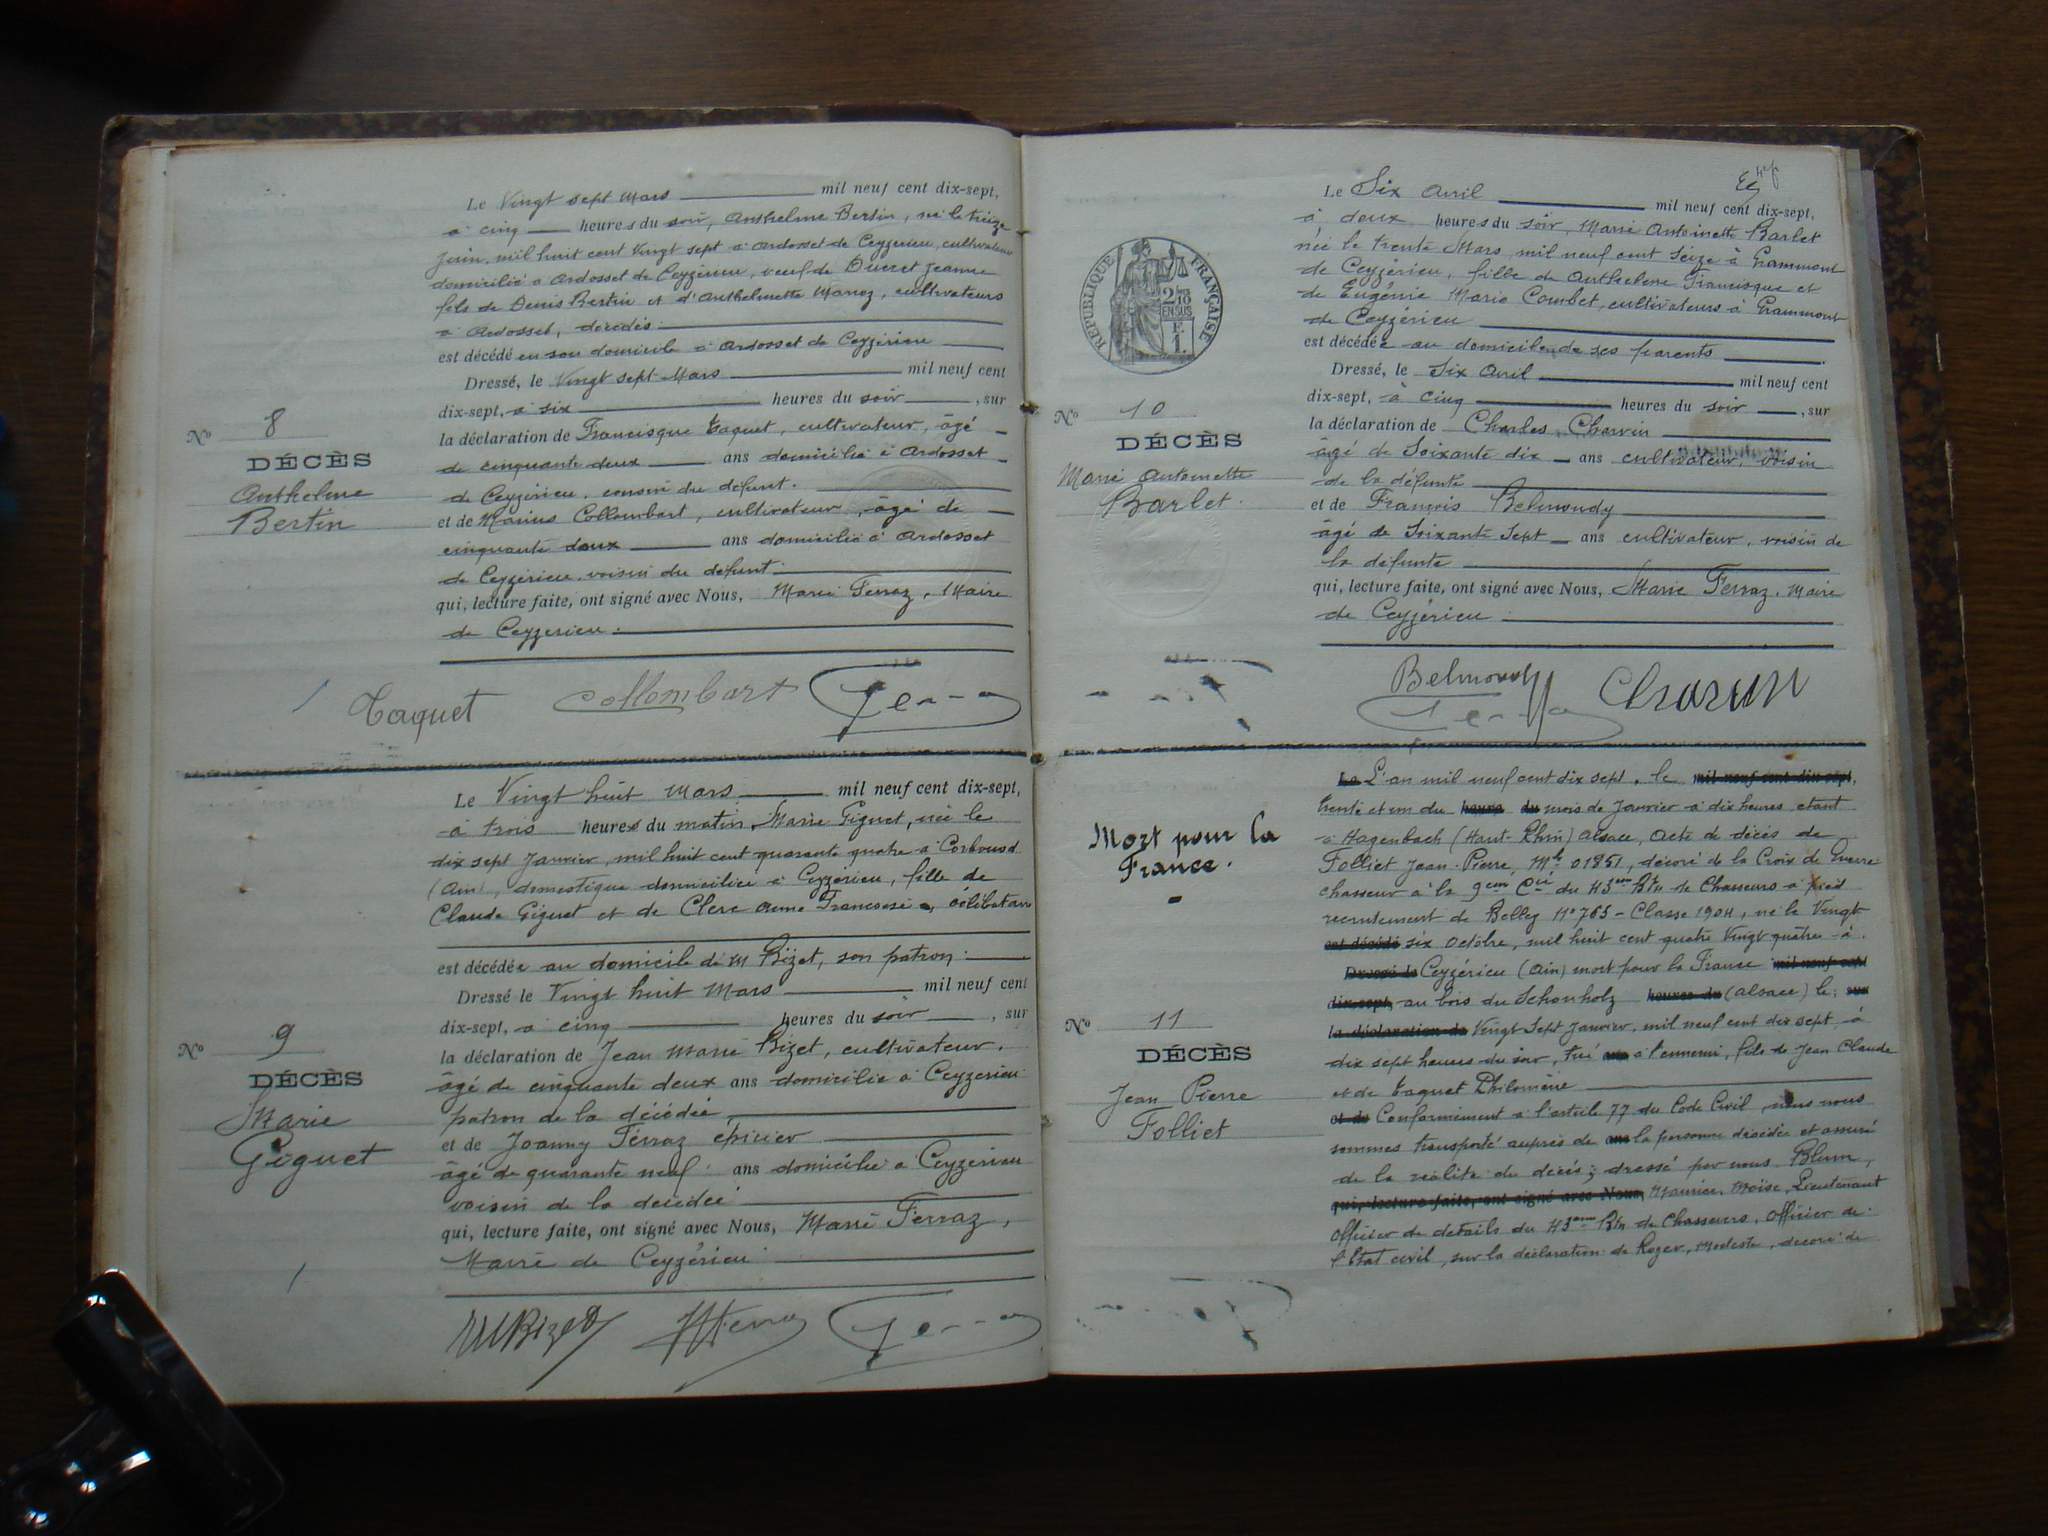 Le Vingt sept Mars mil neuf cent dix-sept,
à cinq heures du soir, Anthelme Bertin, né le treize
Juin, mil huit cent vingt sept à Ardosset de Ceyzérieu, cultivateur
domicilié à Ardosset de Ceyzérieu, veuf de Ducret Jeanne
fils de Denis Bertin et d'Anthelmette, cultivateurs
à Ardosset, décédés
est décédé en son domicile à Ardosset de Ceyzérieu
Dressé, le Vingt sept Mars mil neuf cent
dix-sept, à six heures du soir, sur
la déclaration de Francisque Taquet, cultivateur, âgé
de cinquante deux ans domicilié à Ardosset
de Ceyzérieu, cousin du défunt.
et de Marius Collombart, cultivateur, âgé de
cinquante deux ans domicilié à Ardosset
de Ceyzérieu, voisin du défunt
qui, lecture faite, ont signé avec Nous, Marie Ferraz, Maire
de Ceyzerieu.
No 8
DÉCÈS
Anthelme
Bertin
Taquet Collombart Ferraz
Le Vingt huit Mars mil neuf cent dix-sept,
à trois heures du matin, Marie Giguet, née le
dix sept Janvier, mil huit cent quarante quatre à
(Ain), domestique domiciliée à Ceyzérieu, fille de
Claude Giguet et de Clerc, célibataire
est décédée au domicile de M Bizet, son patron
Dressé le Vingt huit Mars mil neuf cent
dix-sept, à cinq heures du soir, sur
la déclaration de Jean Marie Bizet, cultivateur,
âgé de cinquante deux ans domicilié à Ceyzerieu
patron de la décédée,
et de Joanny Ferraz épicier
âgé de quarante neuf ans domicilié à Ceyzerieu
voisin de la décédée
qui, lecture faite, ont signé avec Nous, Marie Ferraz,
Maire de Ceyzérieu
No 9
DÉCÈS
Marie
Giguet
JM Bizet JH Ferraz Ferraz
RÉPUBLIQUE FRANÇAISE
2/10 EN SUS
F. 1.
Le Six Avril mil neuf cent dix-sept,
à deux heures du soir, Marie Antoinette Barlet
née le trente Mars, mil neuf cent seize à Grammont
de Ceyzérieu, fille de Anthelme Francisque et
de Eugénie Marie Combet, cultivateurs à Grammont
de Ceyzérieu
est décédée au domicile de ses parents
Dressé, le Six Avril mil neuf cent
dix-sept, à cinq heures du soir, sur
la déclaration de Charles Charvin
âgé de Soixante dix ans cultivateur, voisin
de la défunte
et de François Belmondy
âgé de Soixante Sept ans cultivateur, voisin de
la défunte
qui, lecture faite, ont signé avec Nous, Marie Ferraz, Maire
de Ceyzérieu
No 10
DÉCÈS
Marie Antoinette
Barlet.
Belmondy Charvin
Ferraz
Mort pour la
France.
Le L'an mil neuf cent dix sept, le mil neuf cent dix-sept,
trente et un du heures du mois de Janvier à dix heures étant
à Hagenbach (Haut-Rhin) Alsace, Acte de décès de
Folliet Jean-Pierre, Mle 01851, décoré de la Croix de Guerre
chasseur à la 9em Cie du 43em Btn de Chasseurs à pied
recrutement de Belley No 765 - Classe 1904, né le Vingt
est décédé six octobre, mil huit cent quatre vingt quatre à
Dressé le Ceyzérieu (Ain) mort pour la France mil neuf cent
dix-sept, au bois du Schonholz heures du (Alsace) le, sur
la déclaration de Vingt Sept Janvier, mil neuf cent dix sept à
dix sept heures du soir, tué à l'ennemi, fils de Jean Claude
et de Taquet Philomène
et de Conformément à l'article 77 du Code Civil, nous nous
sommes transporté auprès de ans la personne décédée et assuré
de la réalité du décès; dressé par nous Blum,
qui, lecture faite, ont signé avec Nous, Maurice, Moïse, Lieutenant
Officier de détails du 43em Btn de Chasseurs, Officier de
l'Etat civil, sur la déclaration de Roger, Modeste, décoré de
No 11
DÉCÈS
Jean Pierre
Folliet